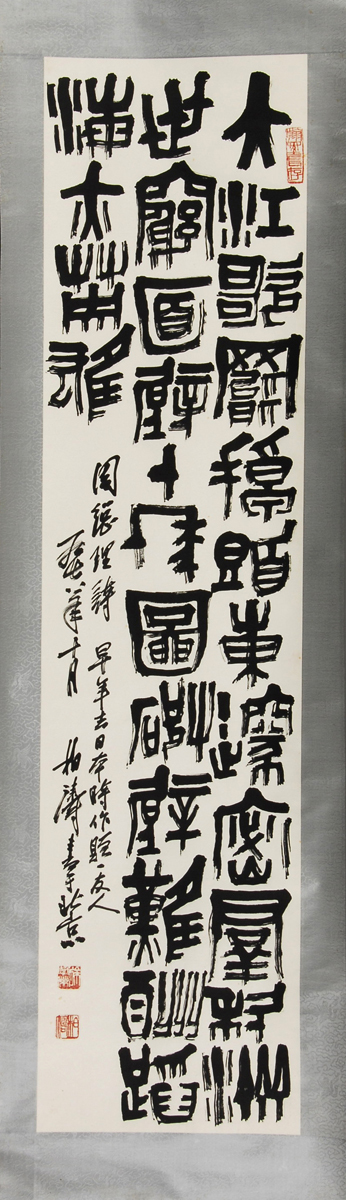 大江歌罷掉頭東邃密群科濟
世窮面壁十年圖破壁難酬蹈
海亦英雄
周總理詩 早年去日本時作贈一友人
一九七八年十月 柏濤書于北京